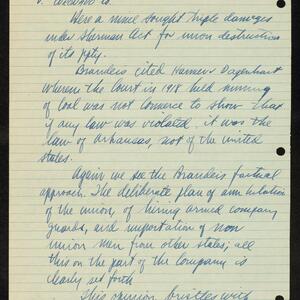 v. Coronado Co.
Here a mine sought triple damages
under Sherman Act for union destruction
of its ppty.
Brandeis cited Hammer v Dagenhart
wherein the Court in 1918 held mining
of Coal was not Comerce to show that
if any law was violated, it was the
law of Arkansas, not of the united
states.
Again we see the Brandeis factual
approach. The deliberate plan of annihilation
of the union, of hiring armed company
guards, and importation of non
union men from other states; all
this on the part of the Company is
clearly set forth
This opinion bristles with